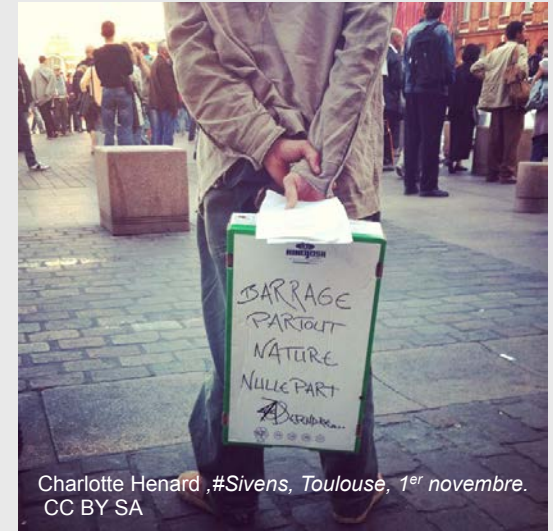 BARRAGE
PARTOUT
NATURE
NULLE PART
Charlotte Henard ,#Sivens, Toulouse, 1er novembre.
CC BY SA